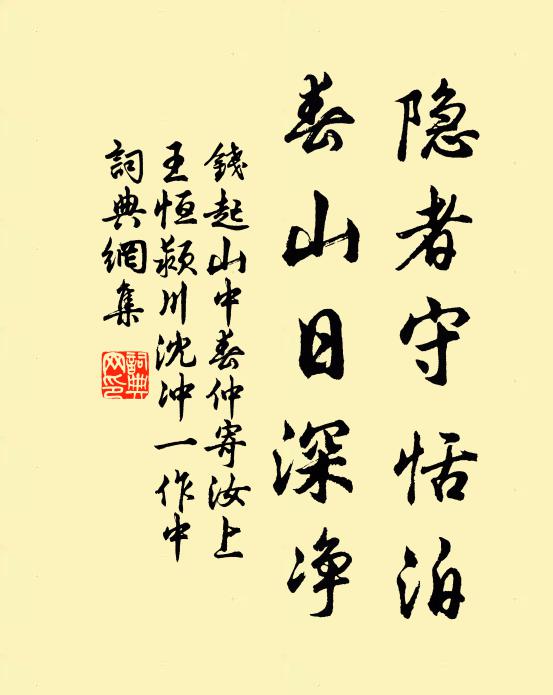 隐者守恬泊
春山日深净
錢起山中春仲寄汝上
王恒颍川沈冲一作中
詞典網集
詞典網印